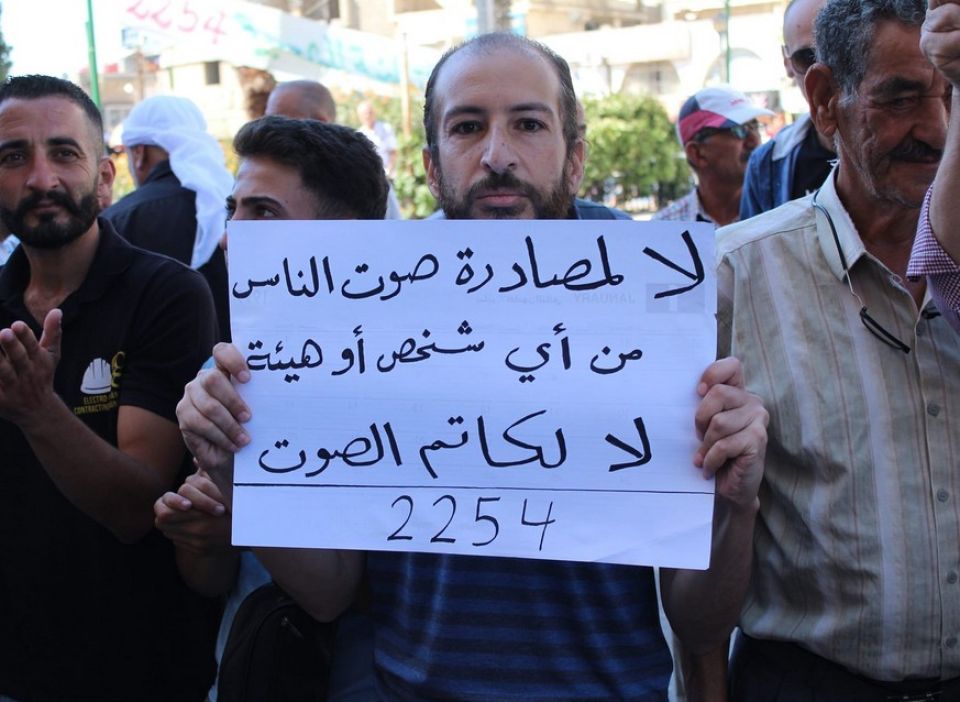 2254
لا لمصادرة صوت الناس
من أي شخص أو هيئة
لا لكاتم الصوت
2254
JANUARY
ELECTRO
CONTRACTING